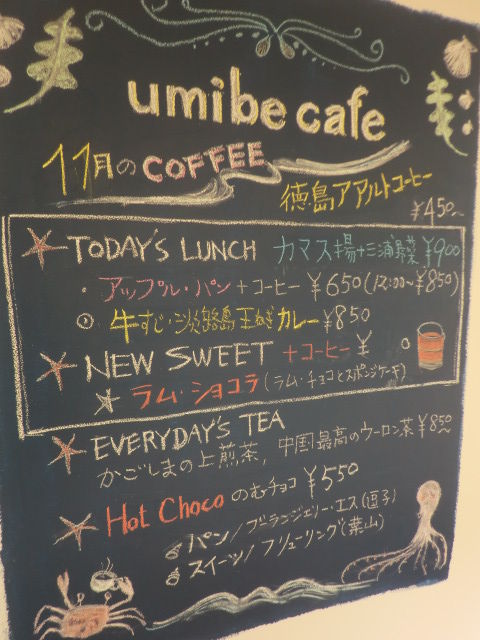 umibe cafe
11月のCOFFEE
徳島アアルトコーヒー
¥450~
TODAY'S LUNCH カマス揚+三浦野菜 ¥900
・アップル・パン+コーヒー ¥650(12:00~¥850)
牛すじ・淡路島玉ねぎカレー ¥850
NEW SWEET +コーヒー ¥
ラム・ショコラ(ラム・チョコとスポンジケーキ)
EVERYDAY'S TEA
かごしまの上煎茶, 中国最高のウーロン茶 ¥850
Hot Choco のむチョコ ¥550
パン/ブーランジェリー・エス(逗子)
スイーツ/フリューリング(葉山)